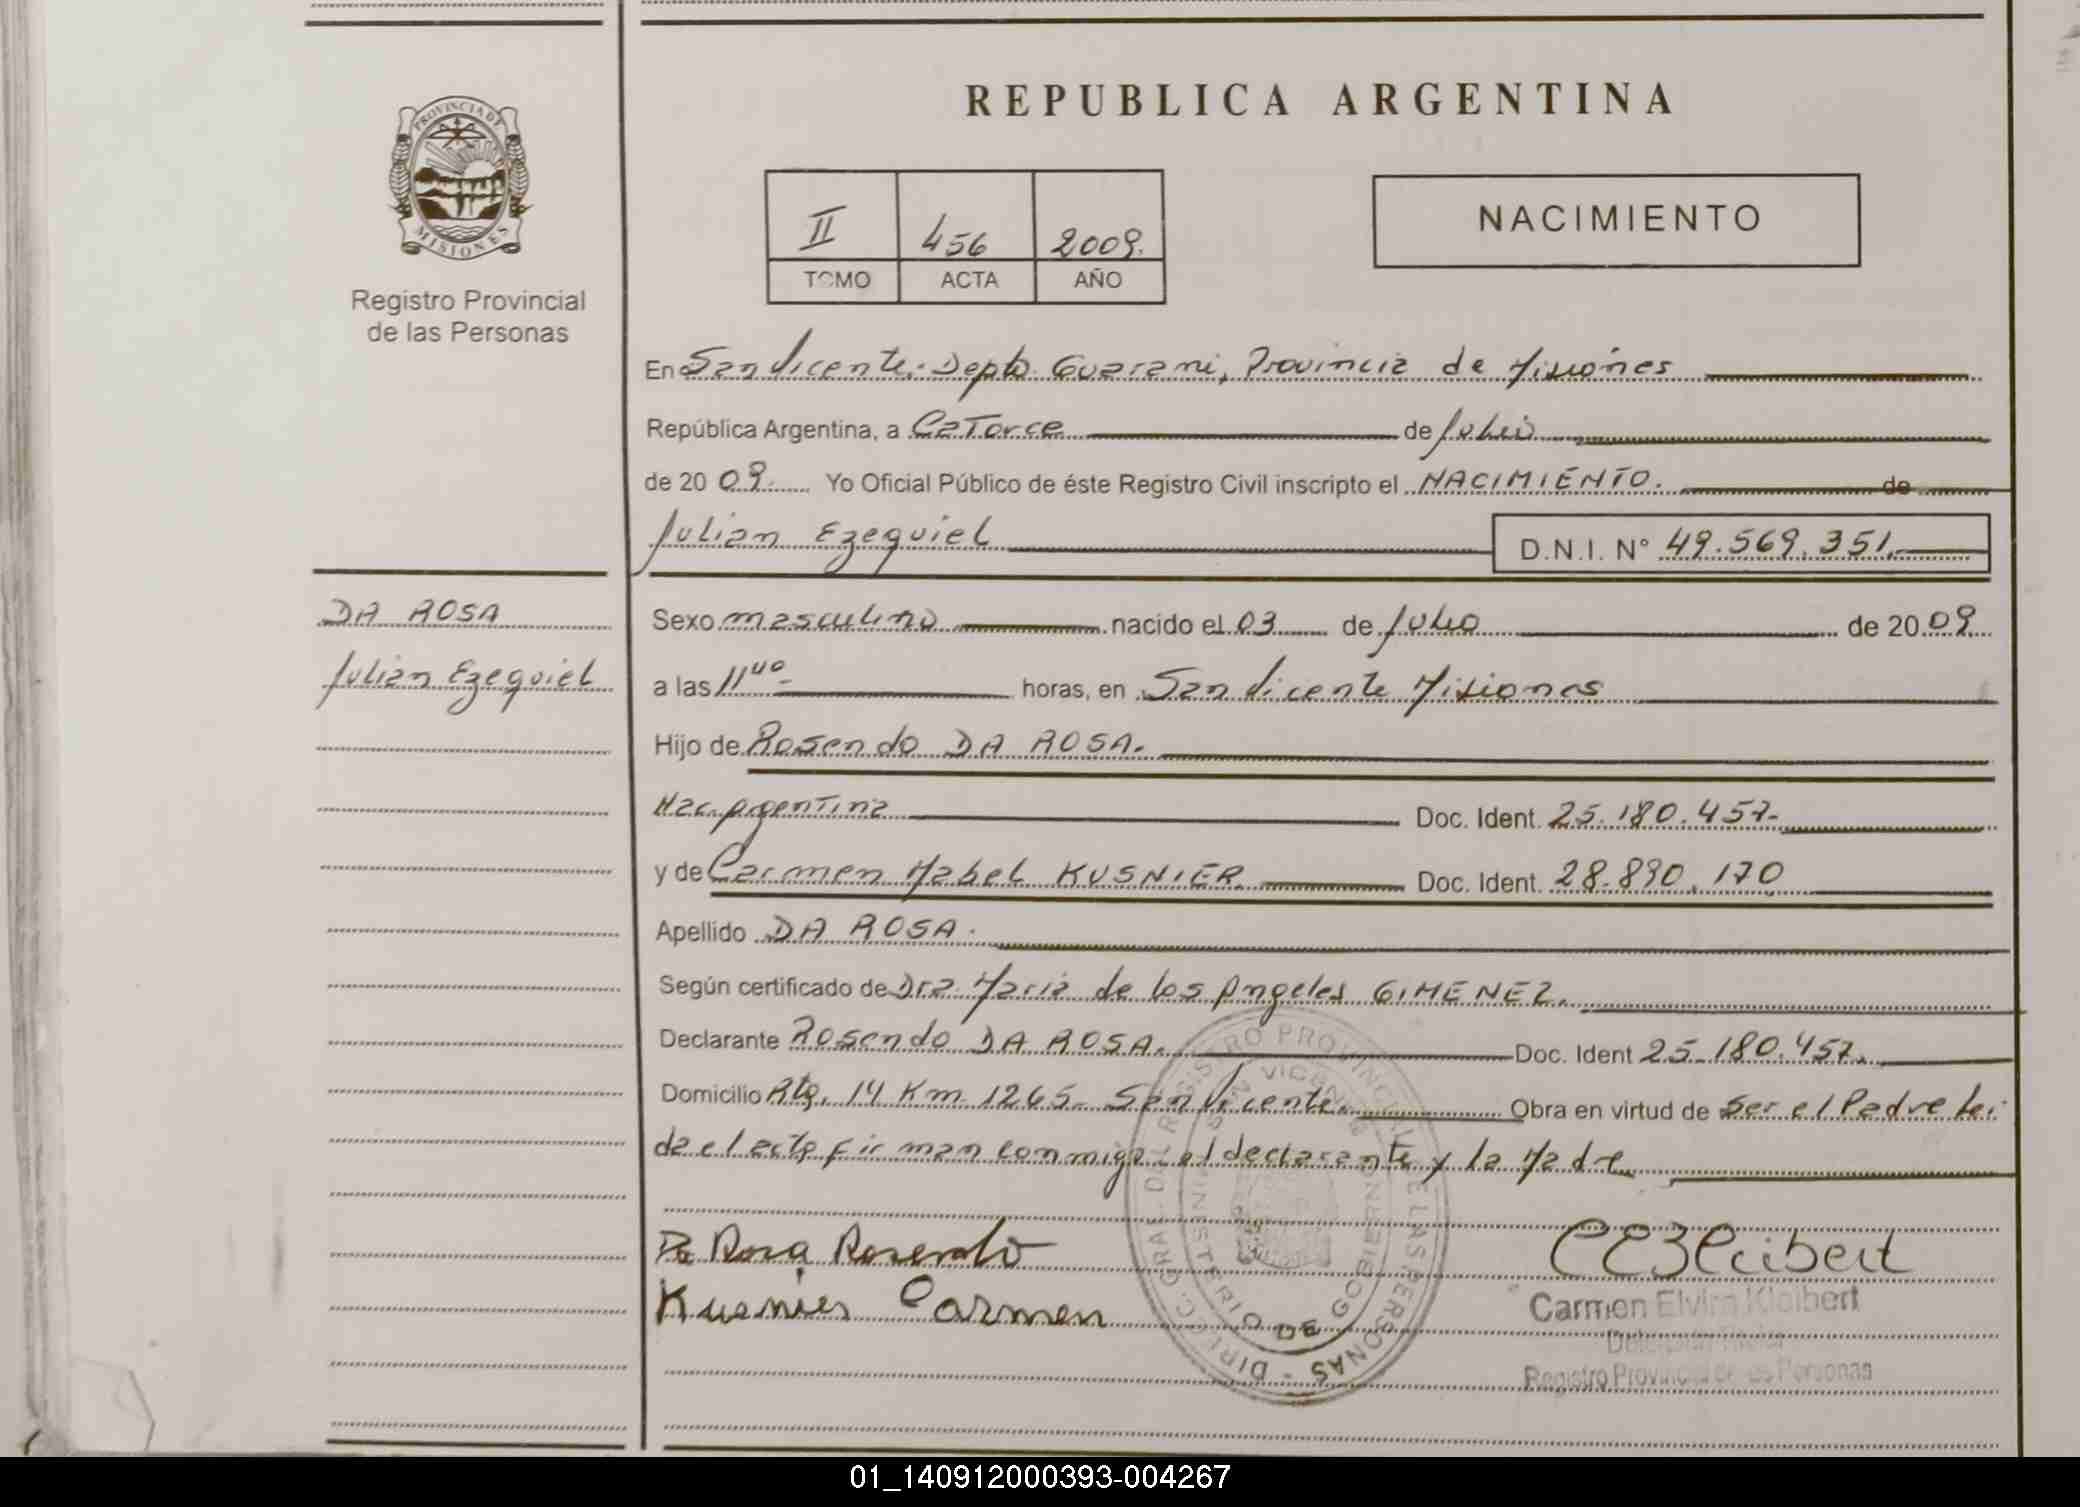 PROVINCIA DE
MISIONES
Registro Provincial
de las Personas
DA ROSA
Julian Ezequiel
REPUBLICA ARGENTINA
II 456 2009.
TOMO ACTA AÑO
NACIMIENTO
En San Vicente.- Depto Guarani, Provincia de Misiones
República Argentina, a Catorce de Julio
de 2009. Yo Oficial Público de éste Registro Civil inscripto el NACIMIENTO. de
Julian Ezequiel D.N.I. N° 49.569.351.
Sexo masculino nacido el 03 de Julio de 2009
a las 11 40 horas, en San Vicente Misiones
Hijo de Rosendo DA ROSA.
Nac. Argentina Doc. Ident. 25.180.457-
y de Carmen Mabel KUSNIER Doc. Ident. 28.890.170
Apellido DA ROSA.
Según certificado de Dra. Maria de los Angeles GIMENEZ.
Declarante Rosendo DA ROSA. Doc. Ident 25.180.457.
Domicilio Rta. 14 Km 1265- San Vicente. Obra en virtud de Ser el Padre Lei-
da el acta firman conmigo el declarante y la Madre
Da Rosa Rosendo
Kusnier Carmen
DIREC. GRAL. DEL REGISTRO PROVINCIAL DE LAS PERSONAS -
SAN VICENTE
MINISTERIO DE GOBIERNO
CEKleibert
Carmen Elvira Kleibert
Registro Provincial de las Personas
01_140912000393-004267